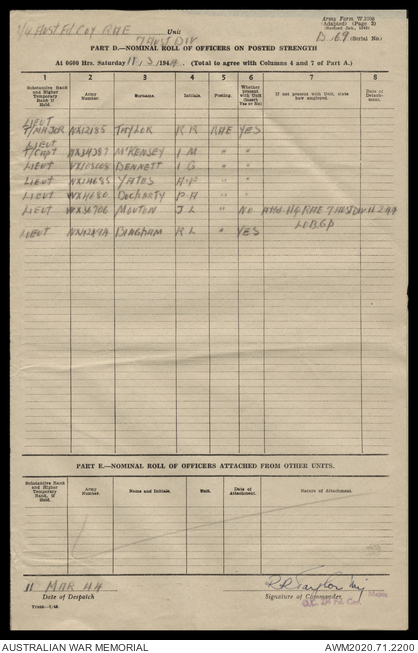 2/4 Aust Fd Coy RAE Unit
7 Aust Div
Army Form W.3008
(Adapted) (Page 2)
D. 69 (Serial No.)
PART D.—NOMINAL ROLL OF OFFICERS ON POSTED STRENGTH
At 0600 Hrs. Saturday 11/3/1944. (Total to agree with Columns 4 and 7 of Part A.)
1 2 3 4 5 6 7 8
Substantive Rank and Higher Temporary Rank if Held. Army Number. Surname. Initials. Posting. Whether present with Unit (Insert Yes or No) If not present with Unit, state how employed. Date of Detachment.
LIEUT
T/MAJOR TAYLOR R R RAE YES
LIEUT
T/Capt McKENSEY I M " "
LIEUT BENNETT I G " "
LIEUT YATES " "
LIEUT DOCHARTY P A " "
LIEUT MOUTON J L " NO RAE 7 AUST DIV
LIEUT BINGHAM R L " YES
PART E.—NOMINAL ROLL OF OFFICERS ATTACHED FROM OTHER UNITS.
Substantive Rank and Higher Temporary Rank, if Held. Army Number. Name and Initials. Unit. Date of Attachment. Nature of Attachment.
11 MAR 44 R R Taylor Maj
Date of Despatch Signature of Commander Major
O.C. 2/4 Fd. Coy.
AUSTRALIAN WAR MEMORIAL AWM2020.71.2200